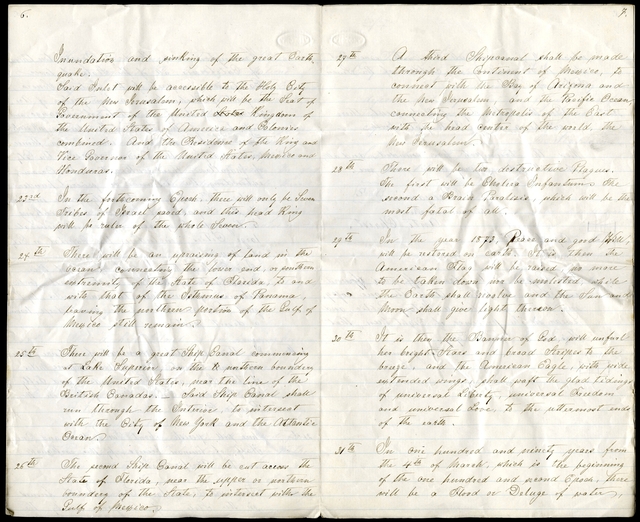 6.
Inundation and sinking of the great Earth,
quake.
Said Inlet will be accessible to the Holy City
of the New Jerusalem, which will be the Seat of
Government of the United States Kingdom of
the United States of America and Colonies
combined. And the Residence of the King and
Vice Governor of the United States, Mexico and
Honduras.
23rd In the forthcoming Epoch, there will only be Seven
Tribes of Israel saved, and this head King
will be ruler of the whole Seven.
24th There will be an upraising of land in the
Ocean connecting the lower end, or southern
extremity of the State of Florida, to and
with that of the Isthmus of Panama,
leaving the northern portion of the Gulf of
Mexico still remain.
25th There will be a great Ship Canal commencing
at Lake Superior on the northern boundery
of the United States, near the line of the
British Canadas. Said Ship Canal shall
run through the Interior to intersect
with the City of New York and the Atlantic
Ocean.
26th The second Ship Canal will be cut across the
State of Florida, near the upper or northern
boundery of the State, to intersect with the
Gulf of Mexico.
7.
27th A third Shipcanal shall be made
through the Continent of Mexico, to
connect with the Bay of Arizona and
the New Jerusalem and the Pacific Ocean
connecting the Metropolis of the East
with the head Centre of the world, the
New Jerusalem.
28th There will be two destructive Plagues.
The first will be Cholera Infantum. The
second a Brain Paralisis, which will be the
most fatal of all.
29th In the year 1873. Peace and good Will,
will be restored on earth. It is then the
American Flag will be raised no more
to be taken down nor be molisted, while
the Earth shall revolve and the Sun and
Moon shall give light thereon.
30th It is then the Banner of God, will unfurl
her bright Stars and broad Stripes to the
breeze, and the American Eagle, with wide
extended wings, shall waft the glad tidings
of universal Liberty, universal Freedom
and universal Love, to the uttermost ends
of the earth.
31th In one hundred and ninety years from
the 4th of March, which is the beginning
of the one hundred and second Epoch, there
will be a Flood or Deluge of water,